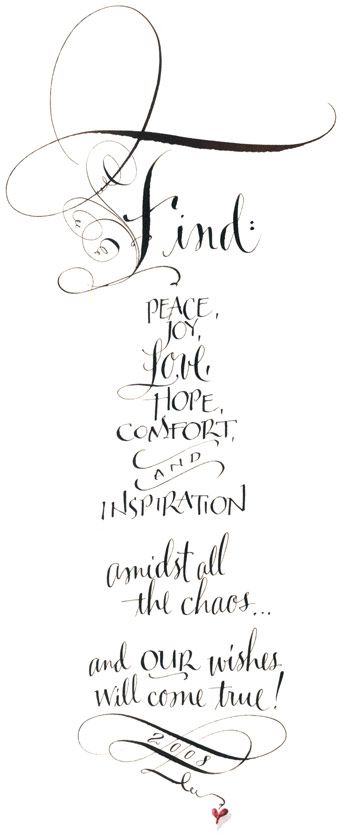 Find:
PEACE,
JOY,
Love,
HOPE,
COMFORT,
AND
INSPIRATION
amidst all
the chaos...
and OUR wishes
will come true!
2008